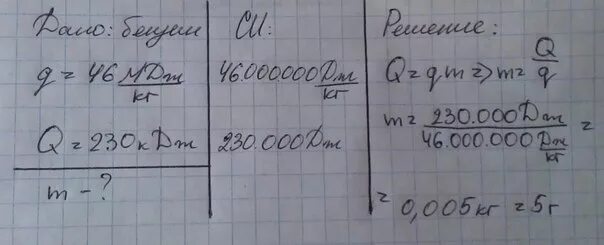 Дано: бензин
q = 46 МДж/кг
Q = 230кДж
m - ?
СИ:
46.000000 Дж/кг
230.000Дж
Решение:
Q = qm => m = Q/q
m = 230.000Дж / 46.000.000 Дж/кг =
= 0,005кг = 5г